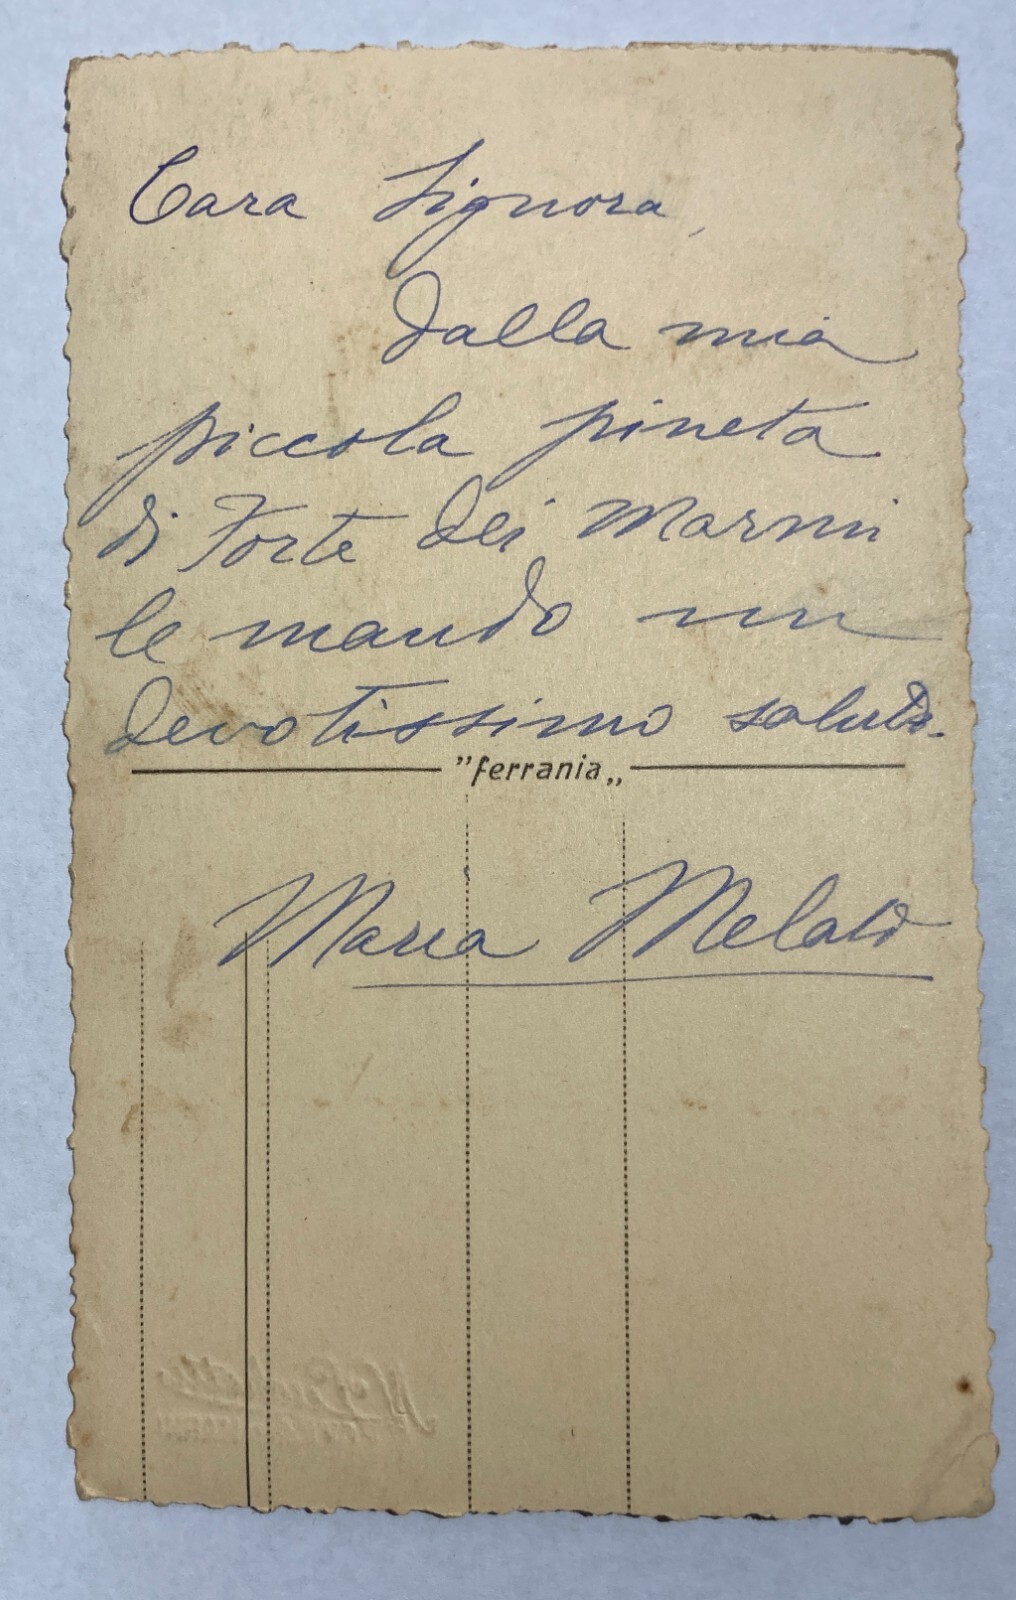 Cara Signora,
dalla mia
piccola pineta
di Forte dei Marmi
le mando un
devotissimo saluto.
"ferrania„
Maria Melato